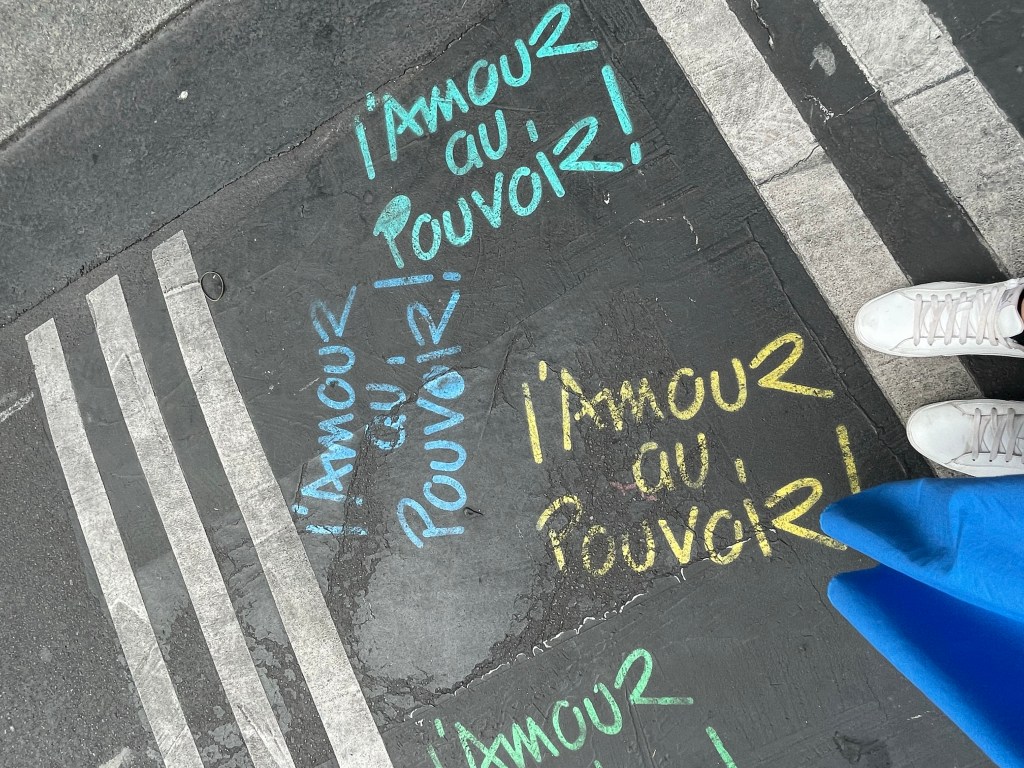 l'AMOUR
au
POUVOIR!
l'AMOUR
au
POUVOIR!
l'AMOUR
au
POUVOIR!
l'AMOUR